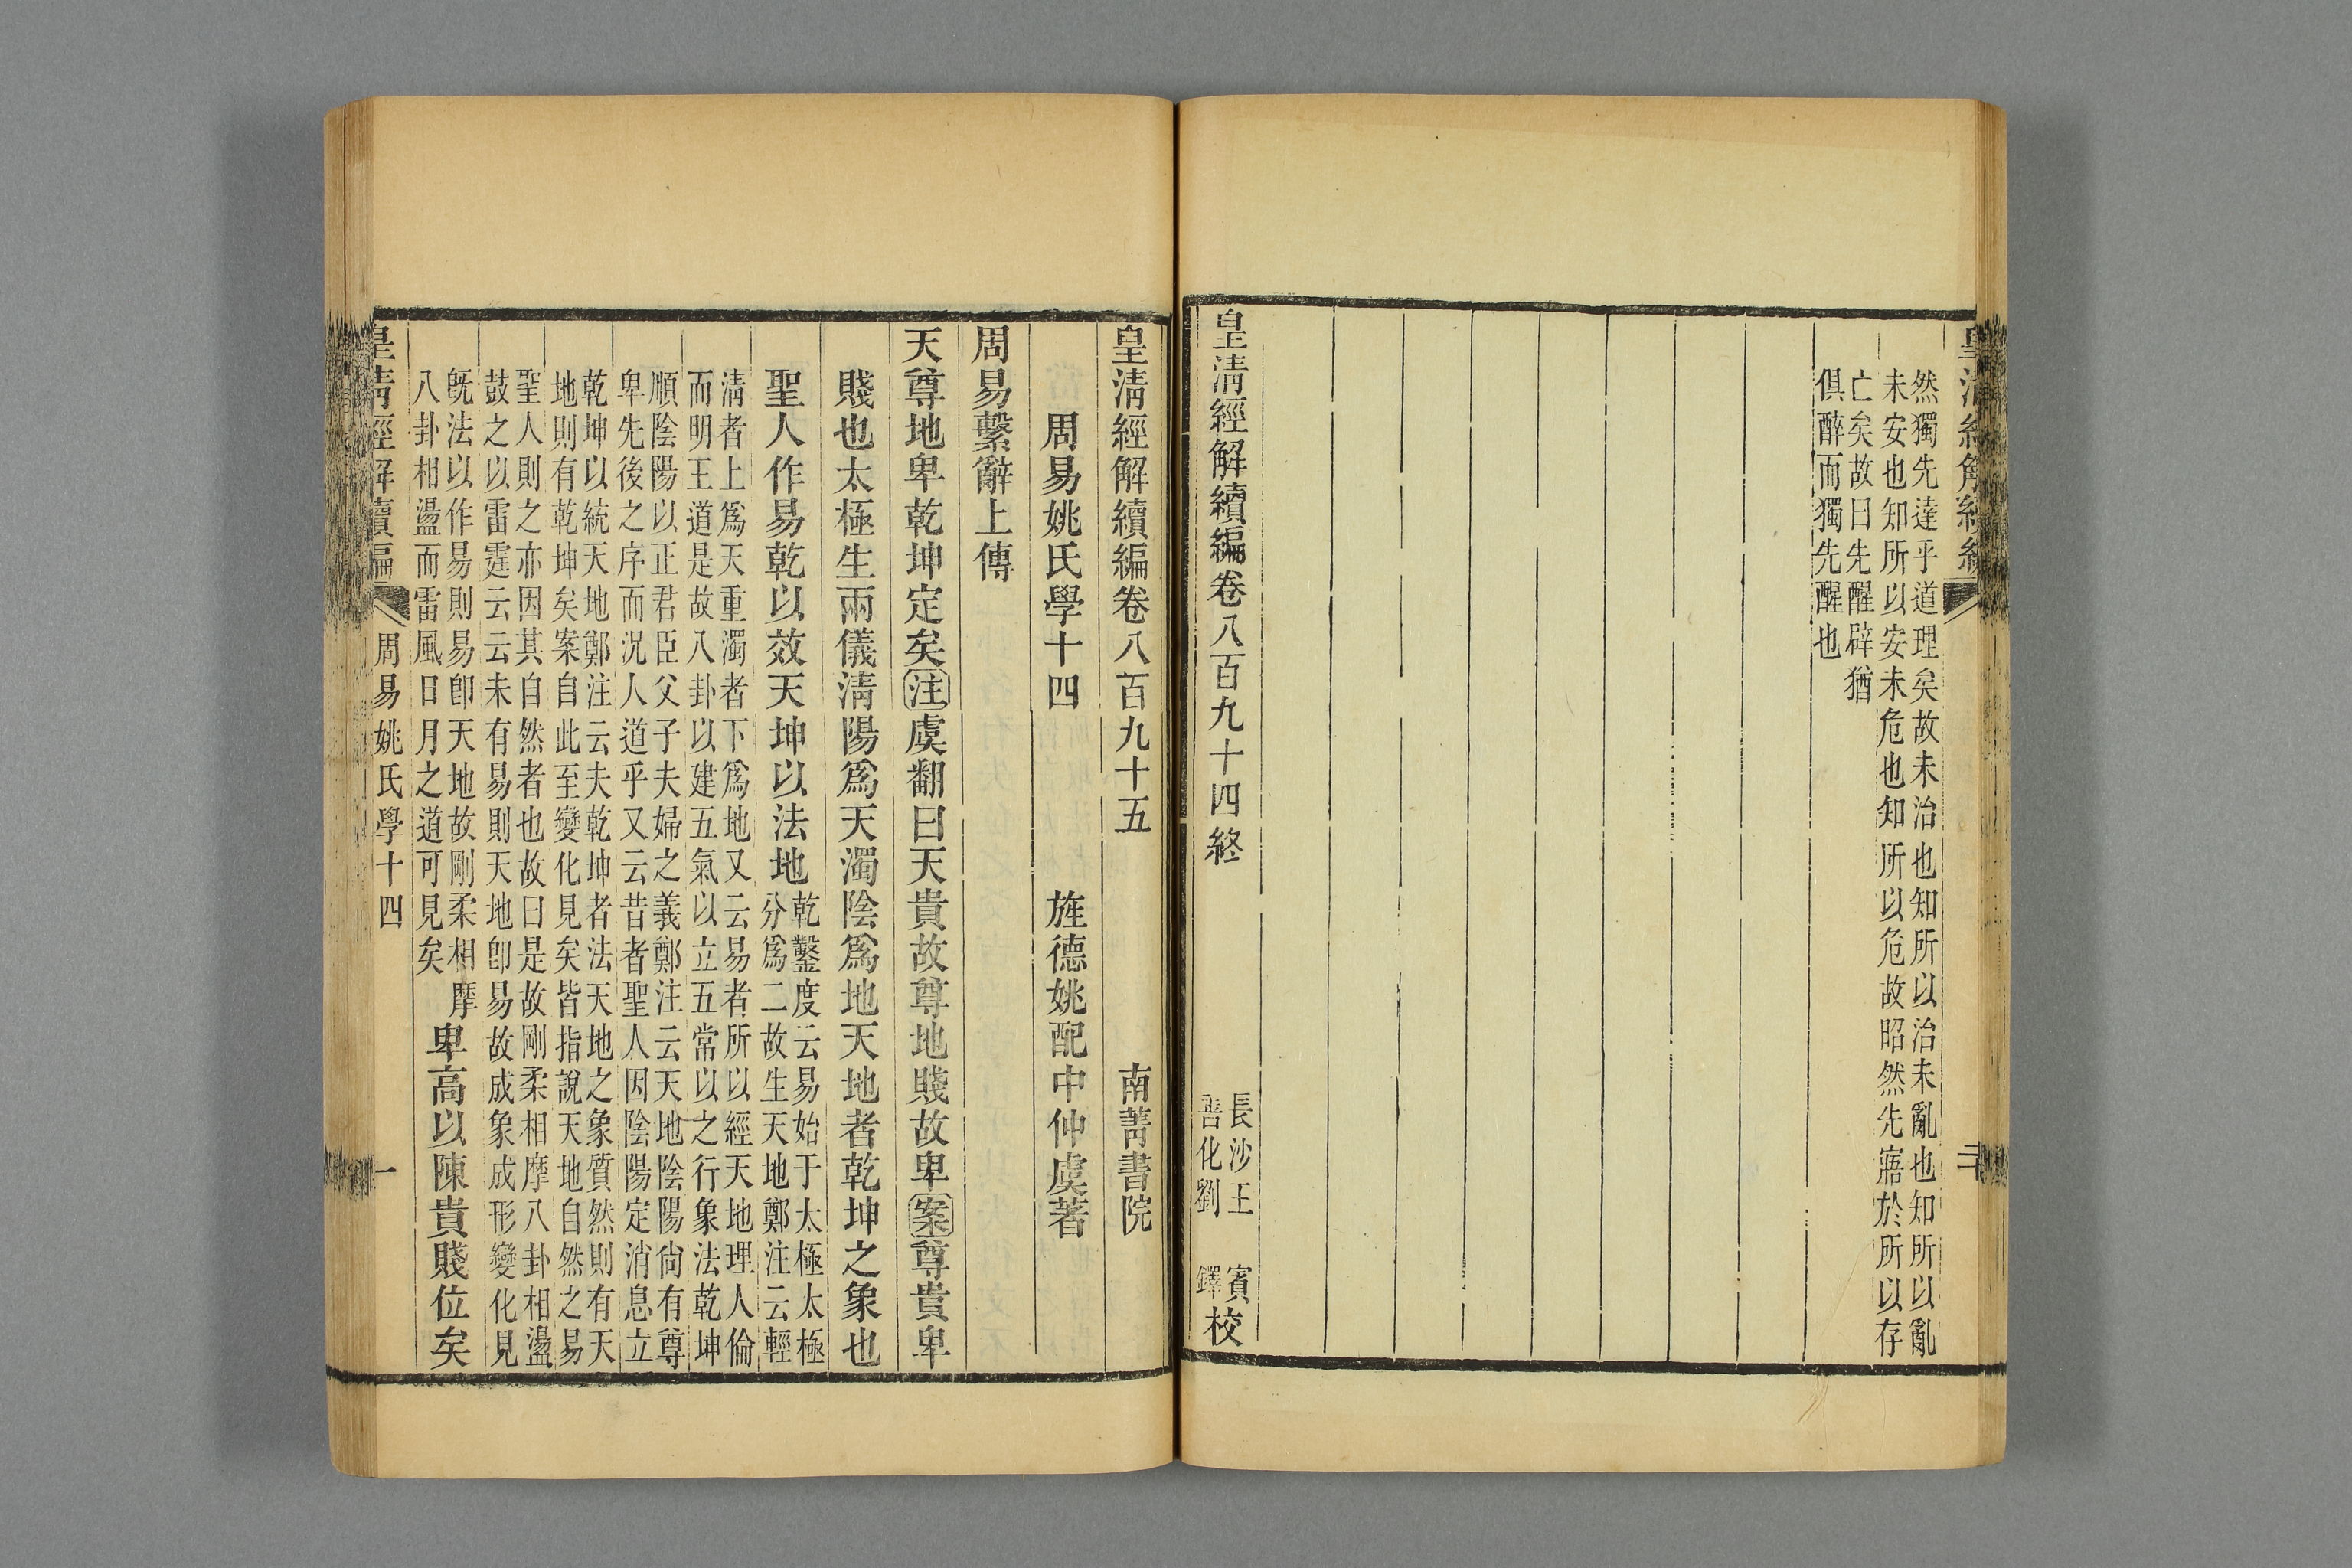 皇清經解續編
二十
然獨先達乎道理矣故未治也知所以治未亂也知所以亂
未安也知所以安未危也知所以危故昭然先寤於所以存
亡矣故曰先醒辟猶
俱醉而獨先醒也
皇清經解續編卷八百九十四終
長沙王 賓
善化劉 鐸
校
皇清經解續編卷八百九十五 南菁書院
周易姚氏學十四 旌德姚配中仲虞著
周易繫辭上傳
天尊地卑乾坤定矣注虞翻曰天貴故尊地賤故卑案尊貴卑
賤也太極生兩儀清陽爲天濁陰爲地天地者乾坤之象也
聖人作易乾以效天坤以法地
乾鑿度云易始于太極太極
分爲二故生天地鄭注云輕
清者上爲天重濁者下爲地又云易者所以經天地理人倫
而明王道是故八卦以建五氣以立五常以之行象法乾坤
順陰陽以正君臣父子夫婦之義鄭注云天地陰陽尙有尊
卑先後之序而況人道乎又云昔者聖人因陰陽定消息立
乾坤以統天地鄭注云夫乾坤者法天地之象質然則有天
地則有乾坤矣案自此至變化見矣皆指說天地自然之易
聖人則之亦因其自然者也故曰是故剛柔相摩八卦相盪
鼓之以雷霆云云未有易則天地卽易故成象成形變化見
旣法以作易則易卽天地故剛柔相摩
八卦相盪而雷風日月之道可見矣
卑高以陳貴賤位矣
皇清經解續編
周易姚氏學十四
一